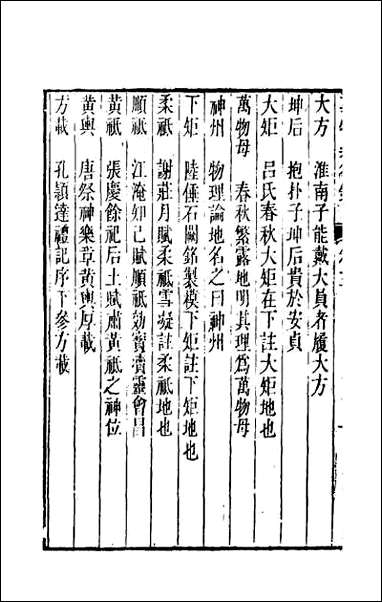 大方　淮南子能戴大員者履大方
坤后　抱朴子坤后貴於安貞
大矩　呂氏春秋大矩在下註大矩地也
萬物母　春秋繁露地明其理爲萬物母
神州　物理論地名之曰神州
下矩　陸倕石闕銘製模下矩註下矩地也
柔祇　謝莊月賦柔祇雪凝註柔祇地也
順祇　江淹知己賦順祇効寶濆靈會昌
黃祇　張慶餘祀后土賦肅黃祇之神位
黃輿　唐祭神樂章黃輿厚載
方載　孔頴達禮記序下參方載